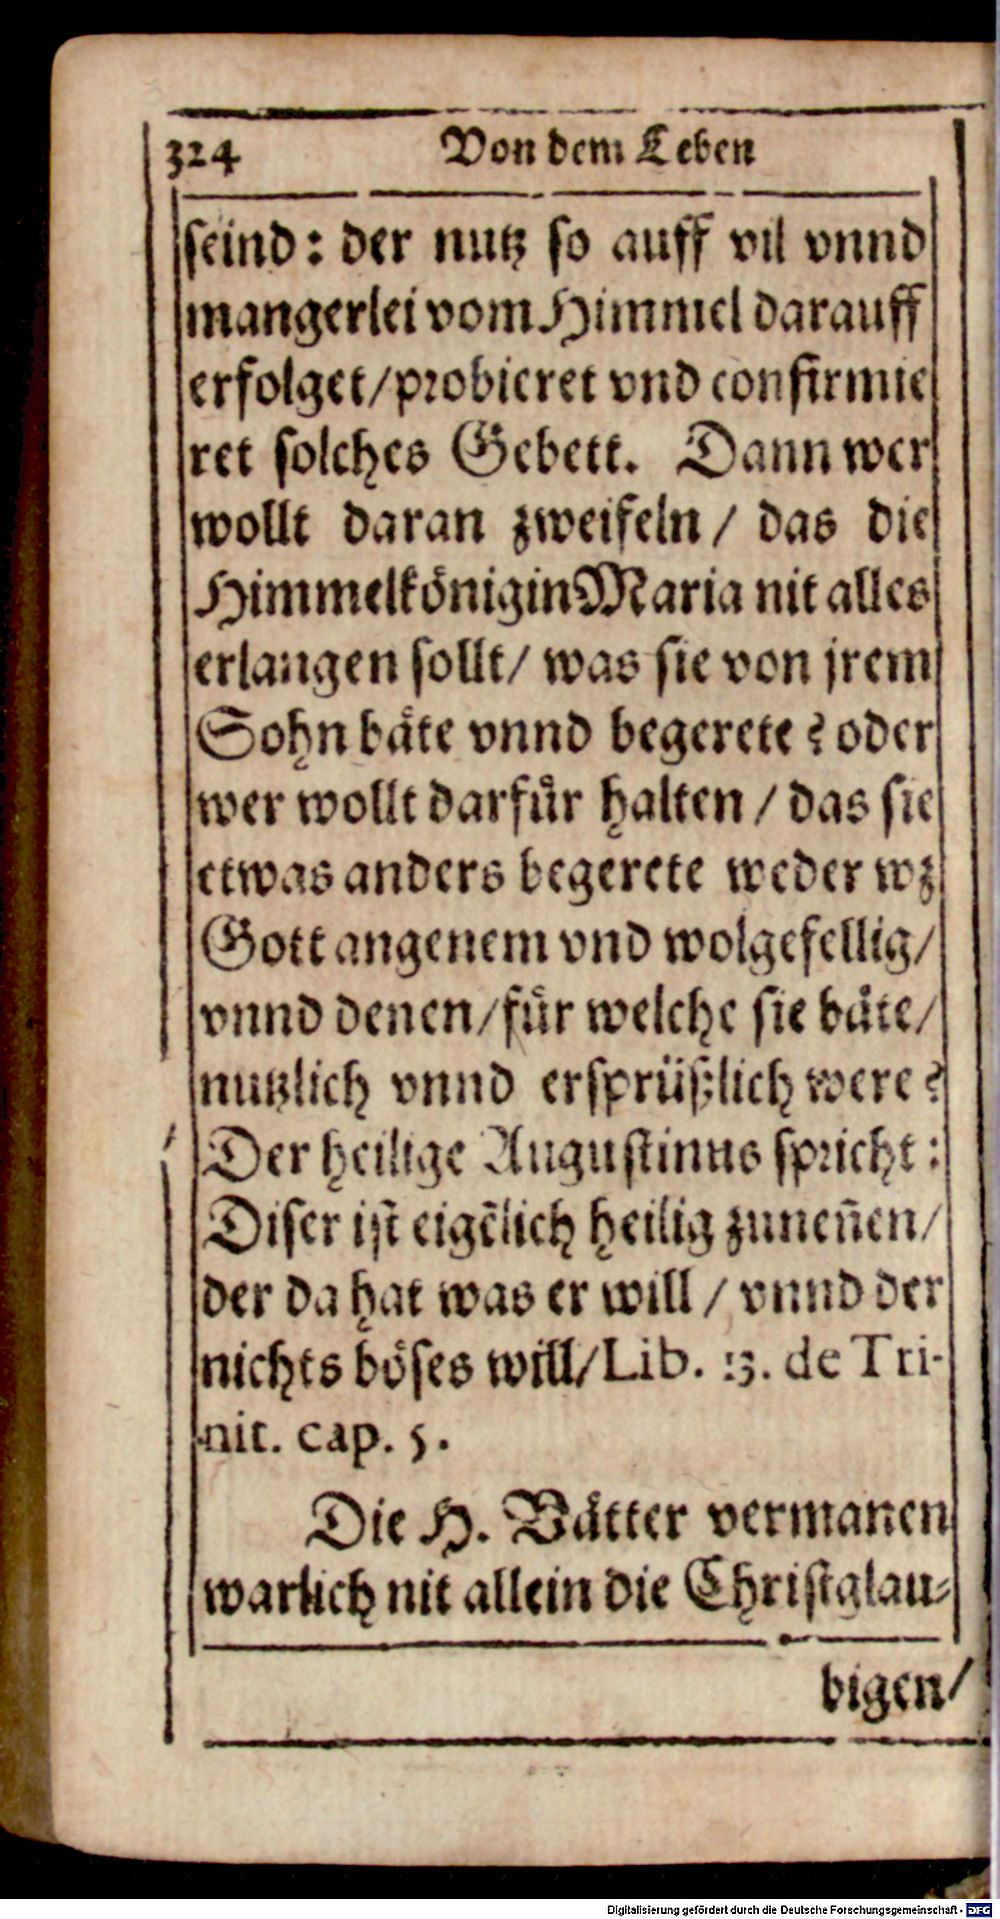 324 Von dem Leben
seind: der nutz so auff vil vnnd
mangerlei vom Himmel darauff
erfolget/probieret vnd confirmie
ret solches Gebett. Dann wer
wollt daran zweifeln/ das die
Himmelkönigin Maria nit alles
erlangen sollt/ was sie von jrem
Sohn bäte vnnd begerete? oder
wer wollt darfür halten/ das sie
etwas anders begerete weder wz
Gott angenem vnd wolgefellig/
vnnd denen/für welche sie bäte/
nutzlich vnnd ersprüßlich were?
Der heilige Augustinus spricht:
Diser ist eigẽlich heilig zuneñen/
der da hat was er will/ vnnd der
nichts böses will/Lib. 13. de Tri-
nit. cap. 5.
Die H. Vätter vermanen
warlich nit allein die Christglau-
bigen/
Digitalisierung gefördert durch die Deutsche Forschungsgemeinschaft - DFG